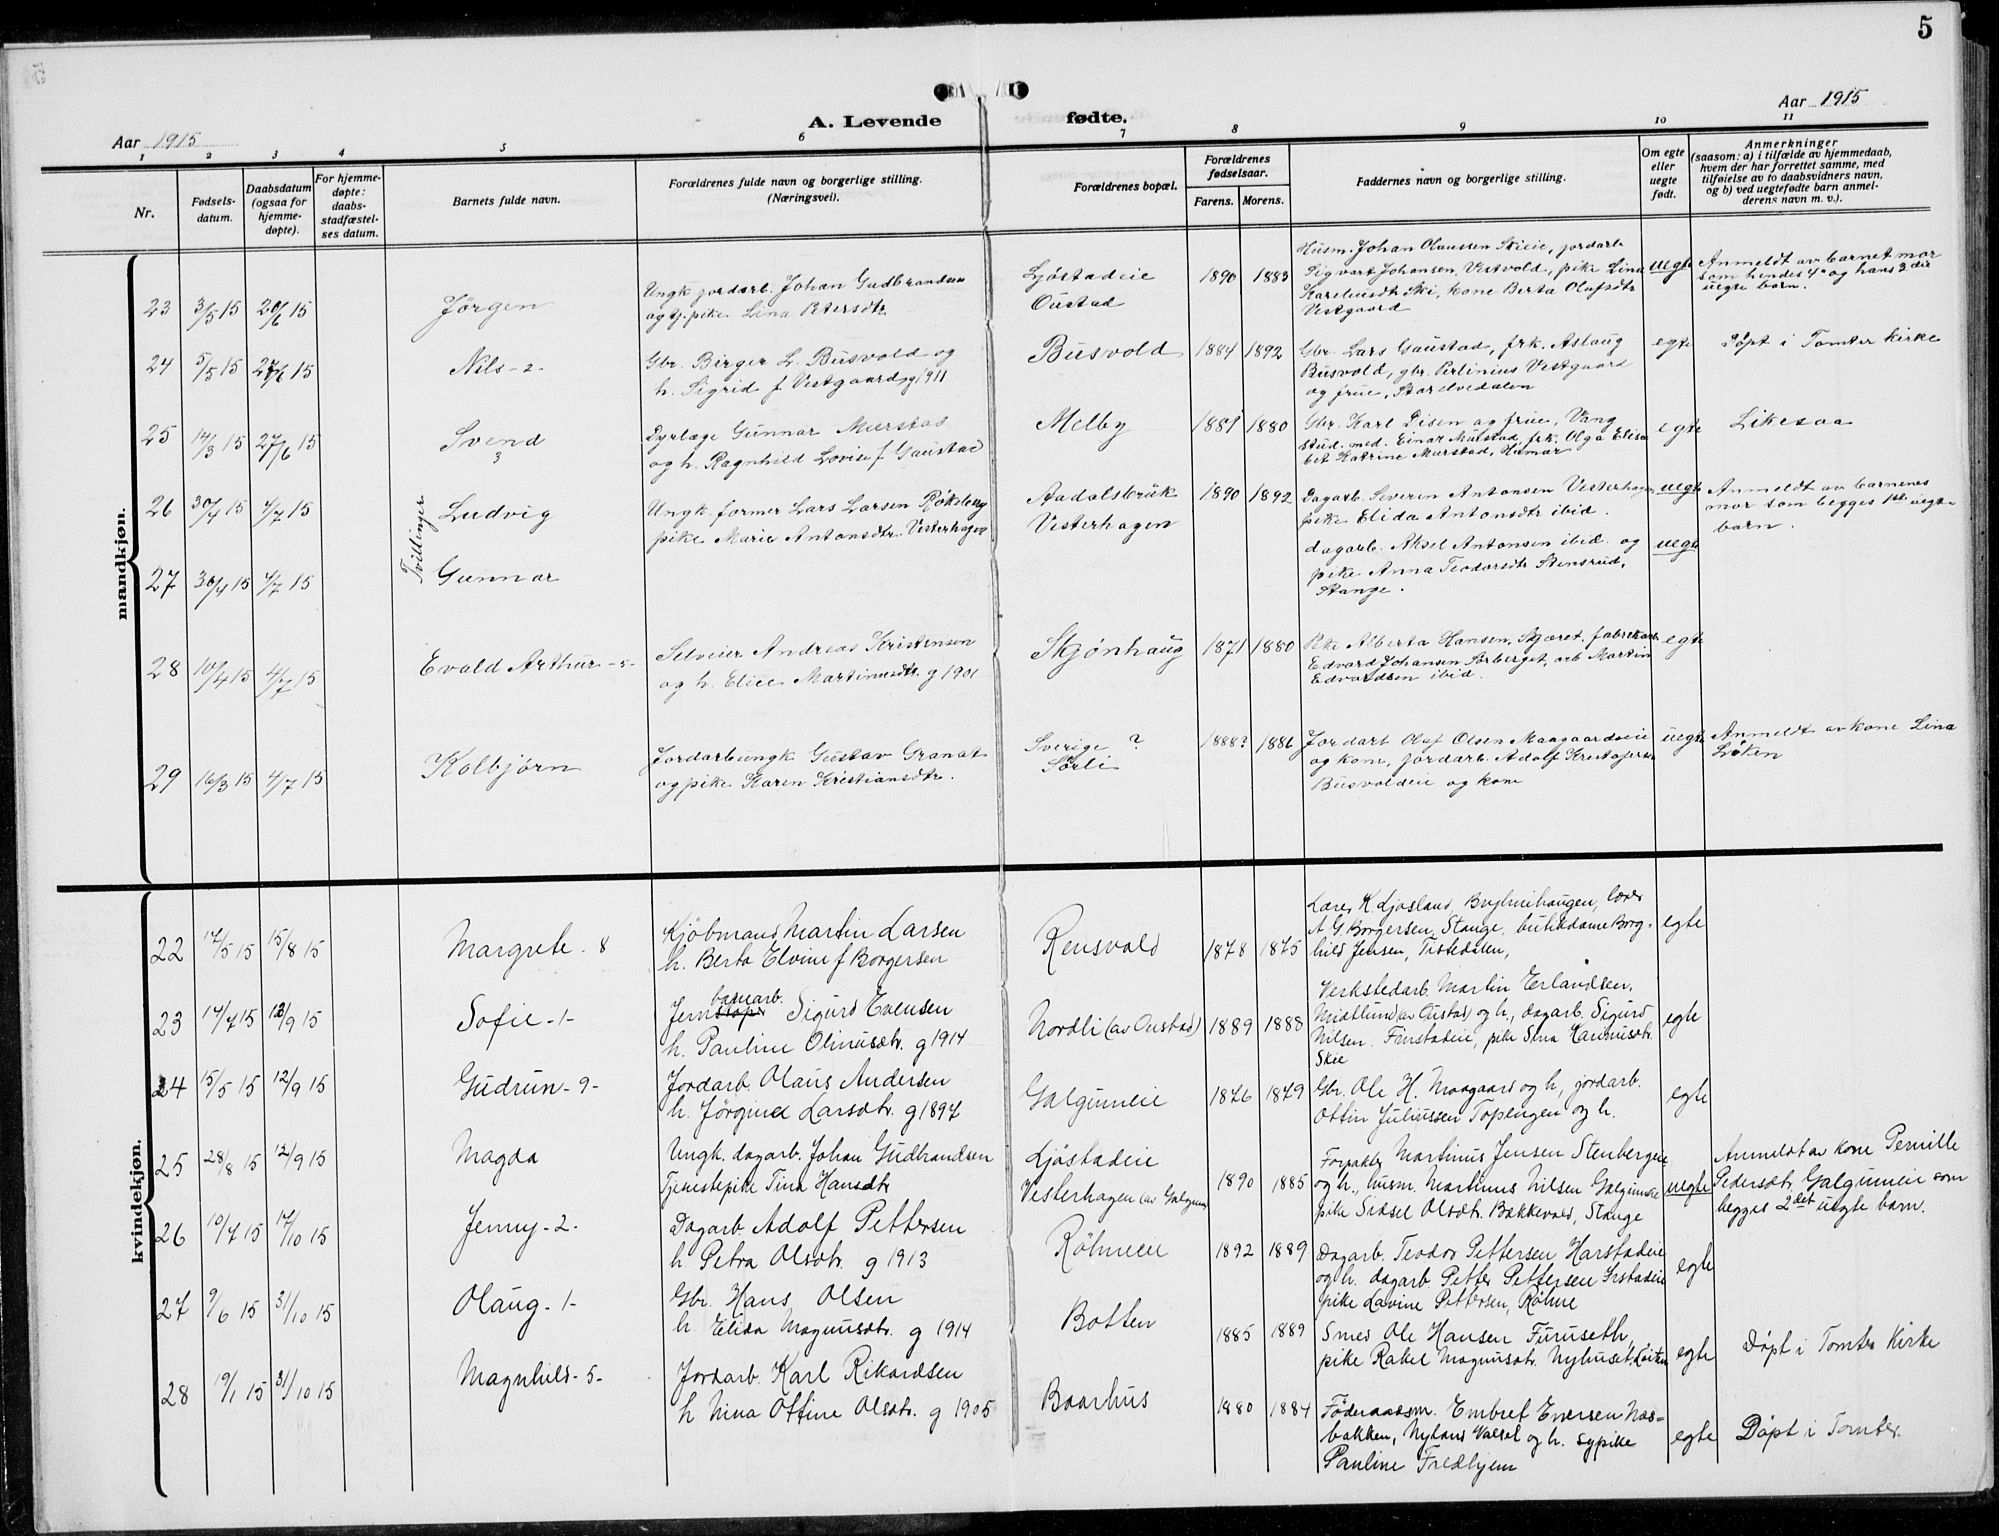 5
Aar 1915
A. Levende
fødte.
Aar 1915
1 2 3 4 5 6 7 8 9 10 11
Nr.
Fødsels-
datum.
Daabsdatum
(ogsaa for
hjemme-
døpte).
For hjemme-
døpte:
daabs-
stadfæstel-
ses datum.
Barnets fulde navn.
Forældrenes fulde navn og borgerlige stilling.
(Næringsvei).
Forældrenes bopæl.
Forældrenes
fødselsaar.
Farens. Morens.
Faddernes navn og borgerlige stilling.
Om egte
eller
uegte
født.
Anmerkninger
(saasom: a) i tilfælde av hjemmedaab,
hvem der har forrettet samme, med
tilføielse av to daabsvidners navn,
og b) ved uegtefødte barn anmel-
derens navn m. v.).
mandkjøn.
23 3/5 15 20/6 15
Jørgen
Ungk. jordarb. Johan Gudbrandsen
og tj. pike Lina Petersdtr
Ljøstadeie
Oustad
1890 1883
Husm. Johan Olaussen Skieie, jordarb
Sigvart Johansen, Vestvold, pike Lina
Karelinsdtr Ski, kone Berta Olafsdtr
Vestgaard
uegte
Anmeldt av barnet mor
som hendes 4de og hans 3die
uegte barn.
24 5/5 15 27/6 15
Nils - 2 -
Gbr. Birger L. Busvold og
h. Sigrid f Vestgaard g 1911
Busvold
1884 1892
Gbr. Lars Gaustad, frk. Aslaug
Busvold, gbr. Perlinius Vestgaard
og frue, Storelvedalen
egte
Døpt i Tomter kirke
25 14/3 15 27/6 15
Svend
3
Dyrlæge Gunnar Murstad
og h. Ragnhild Lovise f Gaustad
Melby
1881 1880
Gbr. Karl Disen og frue, Vang
stud. med. Einar Murstad, frk. Olga Elisa
bet Katrine Murstad, Hamar
egte
Likesaa
Tvillinger
26 30/4 15 4/7 15
Ludvig
Ungk. former Lars Larsen Røkeberg
pike Marie Antonsdtr. Vesterhagen
Aadalsbruk
Vesterhagen
1890 1892
Dagarb. Severin Antonsen Vesterhagen
pike Elida Antonsdtr ibid.
uegte
Anmeldt av barnenes
mor som begges 1ste uegte
barn.
27 30/4 15 4/7 15
Gunnar
dagarb. Aksel Antonsen ibid. og
pike Anna Teodorsdtr Stensrud,
Stange.
uegte
28 10/4 15 4/7 15
Evald Arthur - 5 -
Selveier Andreas Kristensen
og h. Elise Martinusdtr. g 1901
Skjønhaug
1871 1880
Pike Alberta Hansen, Skjæret, fabrikarb.
Edvard Johansen Sørberget, arb Martin
Edvardsen ibid.
egte
29 16/3 15 4/7 15
Kolbjørn
Jordarb ungk Gustav Granat
og pike Karen Kristiansdtr.
Sverige ?
Sørli
1888? 1886
Jordarb Olaf Olsen Maagaardseie
og kone, jordarb. Adolf Kristofersen
Busvoldeie og kone
uegte
Anmeldt av kone Lina
Løken
kvindekjøn.
22 17/5 15 15/8 15
Margrete - 8
Kjøbmand Martin Larsen
h. Berta Elvine f Borgersen
Rensvold
1878 1875
Lærer K. Ljøsland, Bryhnihaugen, lærer
A G. Borgersen, Stange, butikdame Borg-
hild Jensen, Tistedalen,
egte
23 14/7 15 12/9 15
Sofie - 1 -
banearb.
Jern Sigurd Evensen
h. Pauline Olinusdtr. g 1914
Nordli (av Oustad)
1889 1888
Verkstedarb. Martin Erlandsen,
Midtlund (av Oustad) og h., dagarb. Sigurd
Nilsen Finstadeie, pike Lina Karinusdtr.
Skie
egte
24 15/5 15 12/9 15
Gudrun - 9 -
Jordarb. Olaus Andersen
h. Jørgine Larsdtr. g 1897
Galguneie
1876 1879
Gbr. Ole H. Maagaard og h, jordarb.
Ottin Juliussen Topengen og h.
egte
25 28/8 15 12/9 15
Magda
Ungk. dagarb. Johan Gudbrandsen
Tjenestepike Tina Hansdtr
Ljøstadeie
Vesterhagen (av Galgum)
1890 1885
Forpakter Martinus Jensen Stenbergeie
og h., husm. Martinus Nilsen Galguneie
pike Sidsel Olsdtr. Bakkevold, Stange
uegte
Anmeldt av kone Pernille
Pedersdtr. Galguneie som
begges 2det uegte barn.
26 10/7 15 17/10 15
Jenny - 2 -
Dagarb. Adolf Pettersen
h Petra Olsdtr. g 1913
Røhneie
1892 1889
Dagarb. Teodor Pettersen Harstadeie
og h. dagarb Petter Pettersen Irstadeie
pike Lavine Pettersen, Røhne
egte
27 9/6 15 31/10 15
Olaug - 1 -
Gbr. Hans Olsen
h Elida Magnusdtr. g 1914
Botten
1885 1889
Smed Ole Hansen Furuseth,
pike Rakel Magnusdtr. Nyhuset, Løiten
egte
Døpt i Tomter Kirke
28 19/1 15 31/10 15
Magnhild - 5 -
Jordarb. Karl Rikardsen
h Nina Ottine Olsdtr. g 1905
Baarhus
1880 1884
Føderaadsm. Embret Enersen Næs-
bakken, Nylaus Valset og h. sypike
Pauline Fredhjem
egte
Døpt i Tomter.